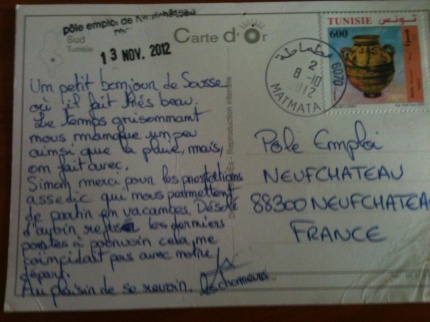 pôle emploi de Neufchâteau
13 NOV. 2012
Sud
Tunisie
Carte d'Or
TUNISIE تونس
600
مطماطة
6070
2
8-10
2012
MATMATA
Un petit bonjour de Sousse
où il fait très beau.
Le temps grisonnant
nous manque un peu
ainsi que la pluie, mais,
on fait avec.
Sinon, merci pour les prestations
assedic qui nous permettent
de partir en vacances. Désolé
d'avoir refusé les derniers
postes à pourvoir cela ne
coincidait pas avec notre
départ.
Au plaisir de se revoir. les chomeurs
Pôle Emploi
NEUFCHATEAU
88300 NEUFCHATEA
FRANCE